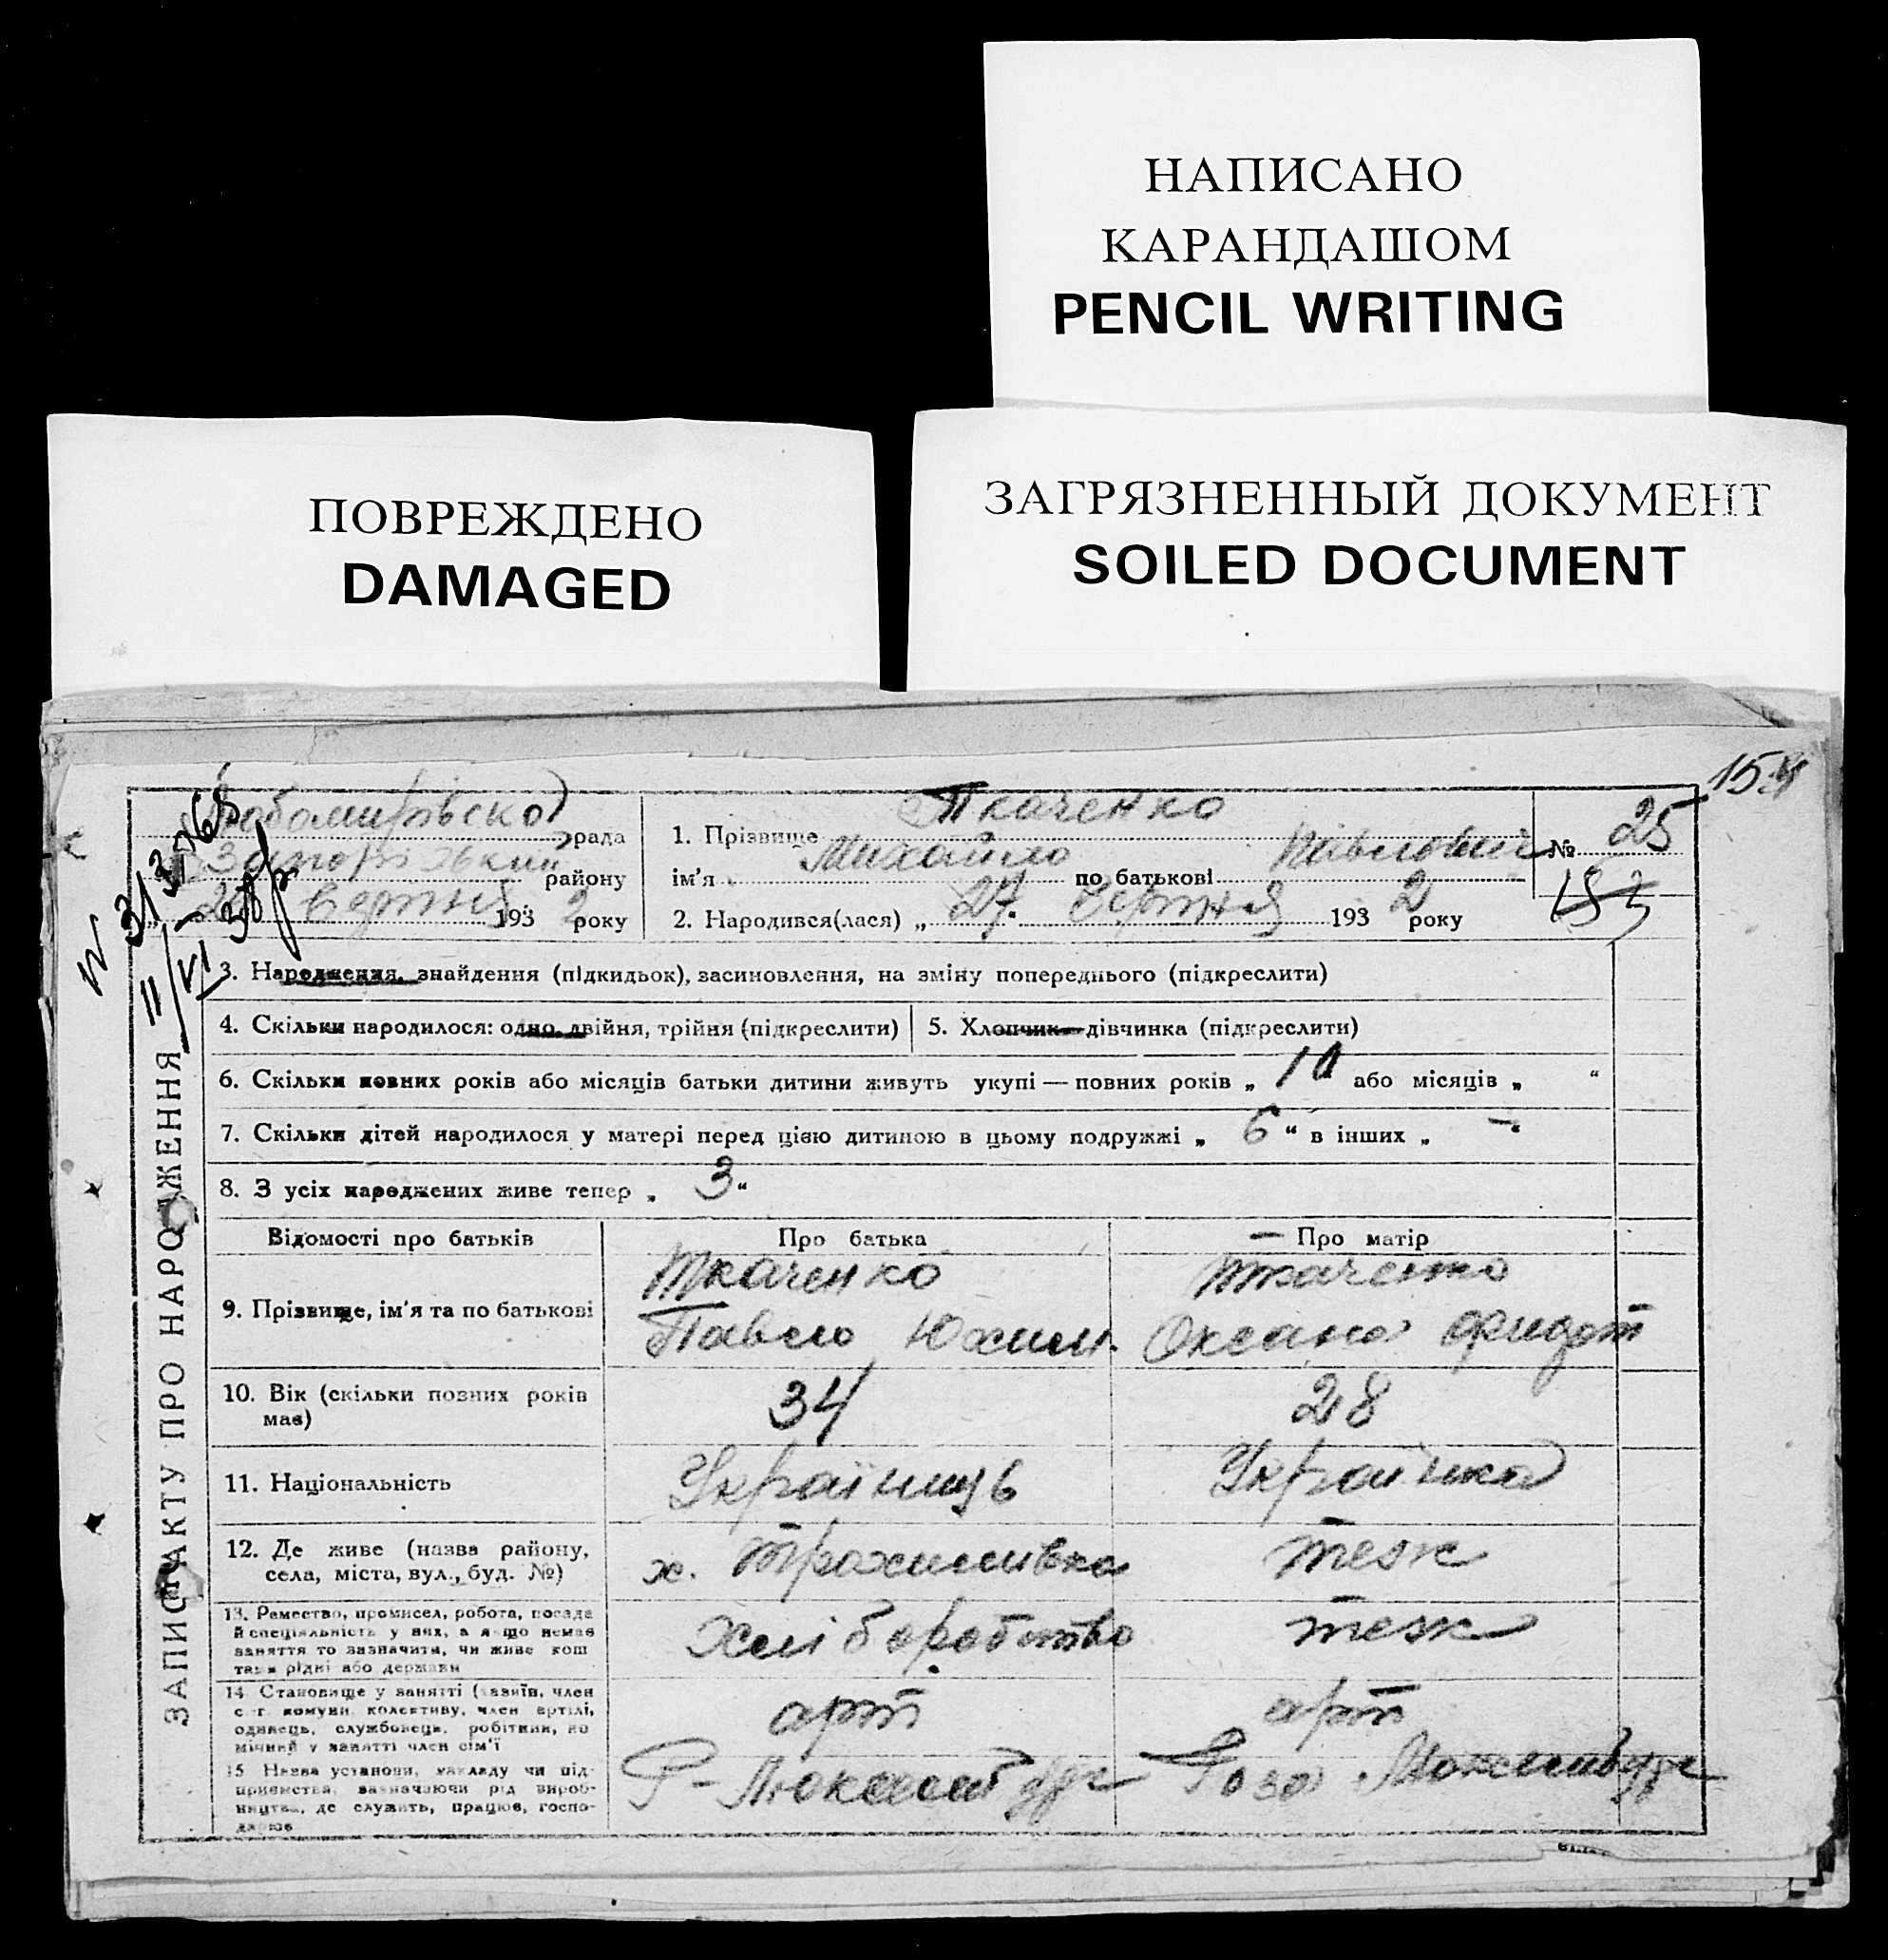 НАПИСАНО
КАРАНДАШОМ
PENCIL WRITING
ПОВРЕЖДЕНО
DAMAGED
ЗАГРЯЗНЕННЫЙ ДОКУМЕНТ
SOILED DOCUMENT
154
рада
району
193 2 року
1. Прізвище Ткаченко
ім'я Михайло по батькові Павлович
2. Народився(лася) „ 27 Серпня 193 2 року
№ 25
153
3. Народження, знайдення (підкидьок), засиновлення, на зміну попереднього (підкреслити)
4. Скільки народилося: одно, двійня, трійня (підкреслити)
5. Хлопчик—дівчинка (підкреслити)
6. Скільки повних років або місяців батьки дитини живуть укупі — повних років „ 10 або місяців „ “
7. Скільки дітей народилося у матері перед цією дитиною в цьому подружжі „ 6 “ в інших „ — “
8. З усіх народжених живе тепер „ 3 “
ЗАПИС АКТУ ПРО НАРОДЖЕННЯ
Відомості про батьків
Про батька
Про матір
9. Прізвище, ім'я та по батькові
Ткаченко
Павло Юхим.
Ткаченко
Оксана
10. Вік (скільки повних років
має)
34
28
11. Національність
Українець
Українка
12. Де живе (назва району,
села, міста, вул., буд. №)
х. Трохимівка
теж
13. Ремество, промисел, робота, посада
й спеціяльність у них, а якщо немає
заняття то зазначити, чи живе кош
там рідні або держави
Хліборобство
теж
14. Становище у занятті (хазяїн, член
с.-г. комуни, колективу, член артілі,
одинець, службовець, робітник, по
мічний у занятті член сім'ї
арт
арт
15. Назва установи, закладу чи під-
приємства, зазначаючи рід вироб-
ництва, де служить, працює, госпо-
дарює
Р-Люксембург
Роза